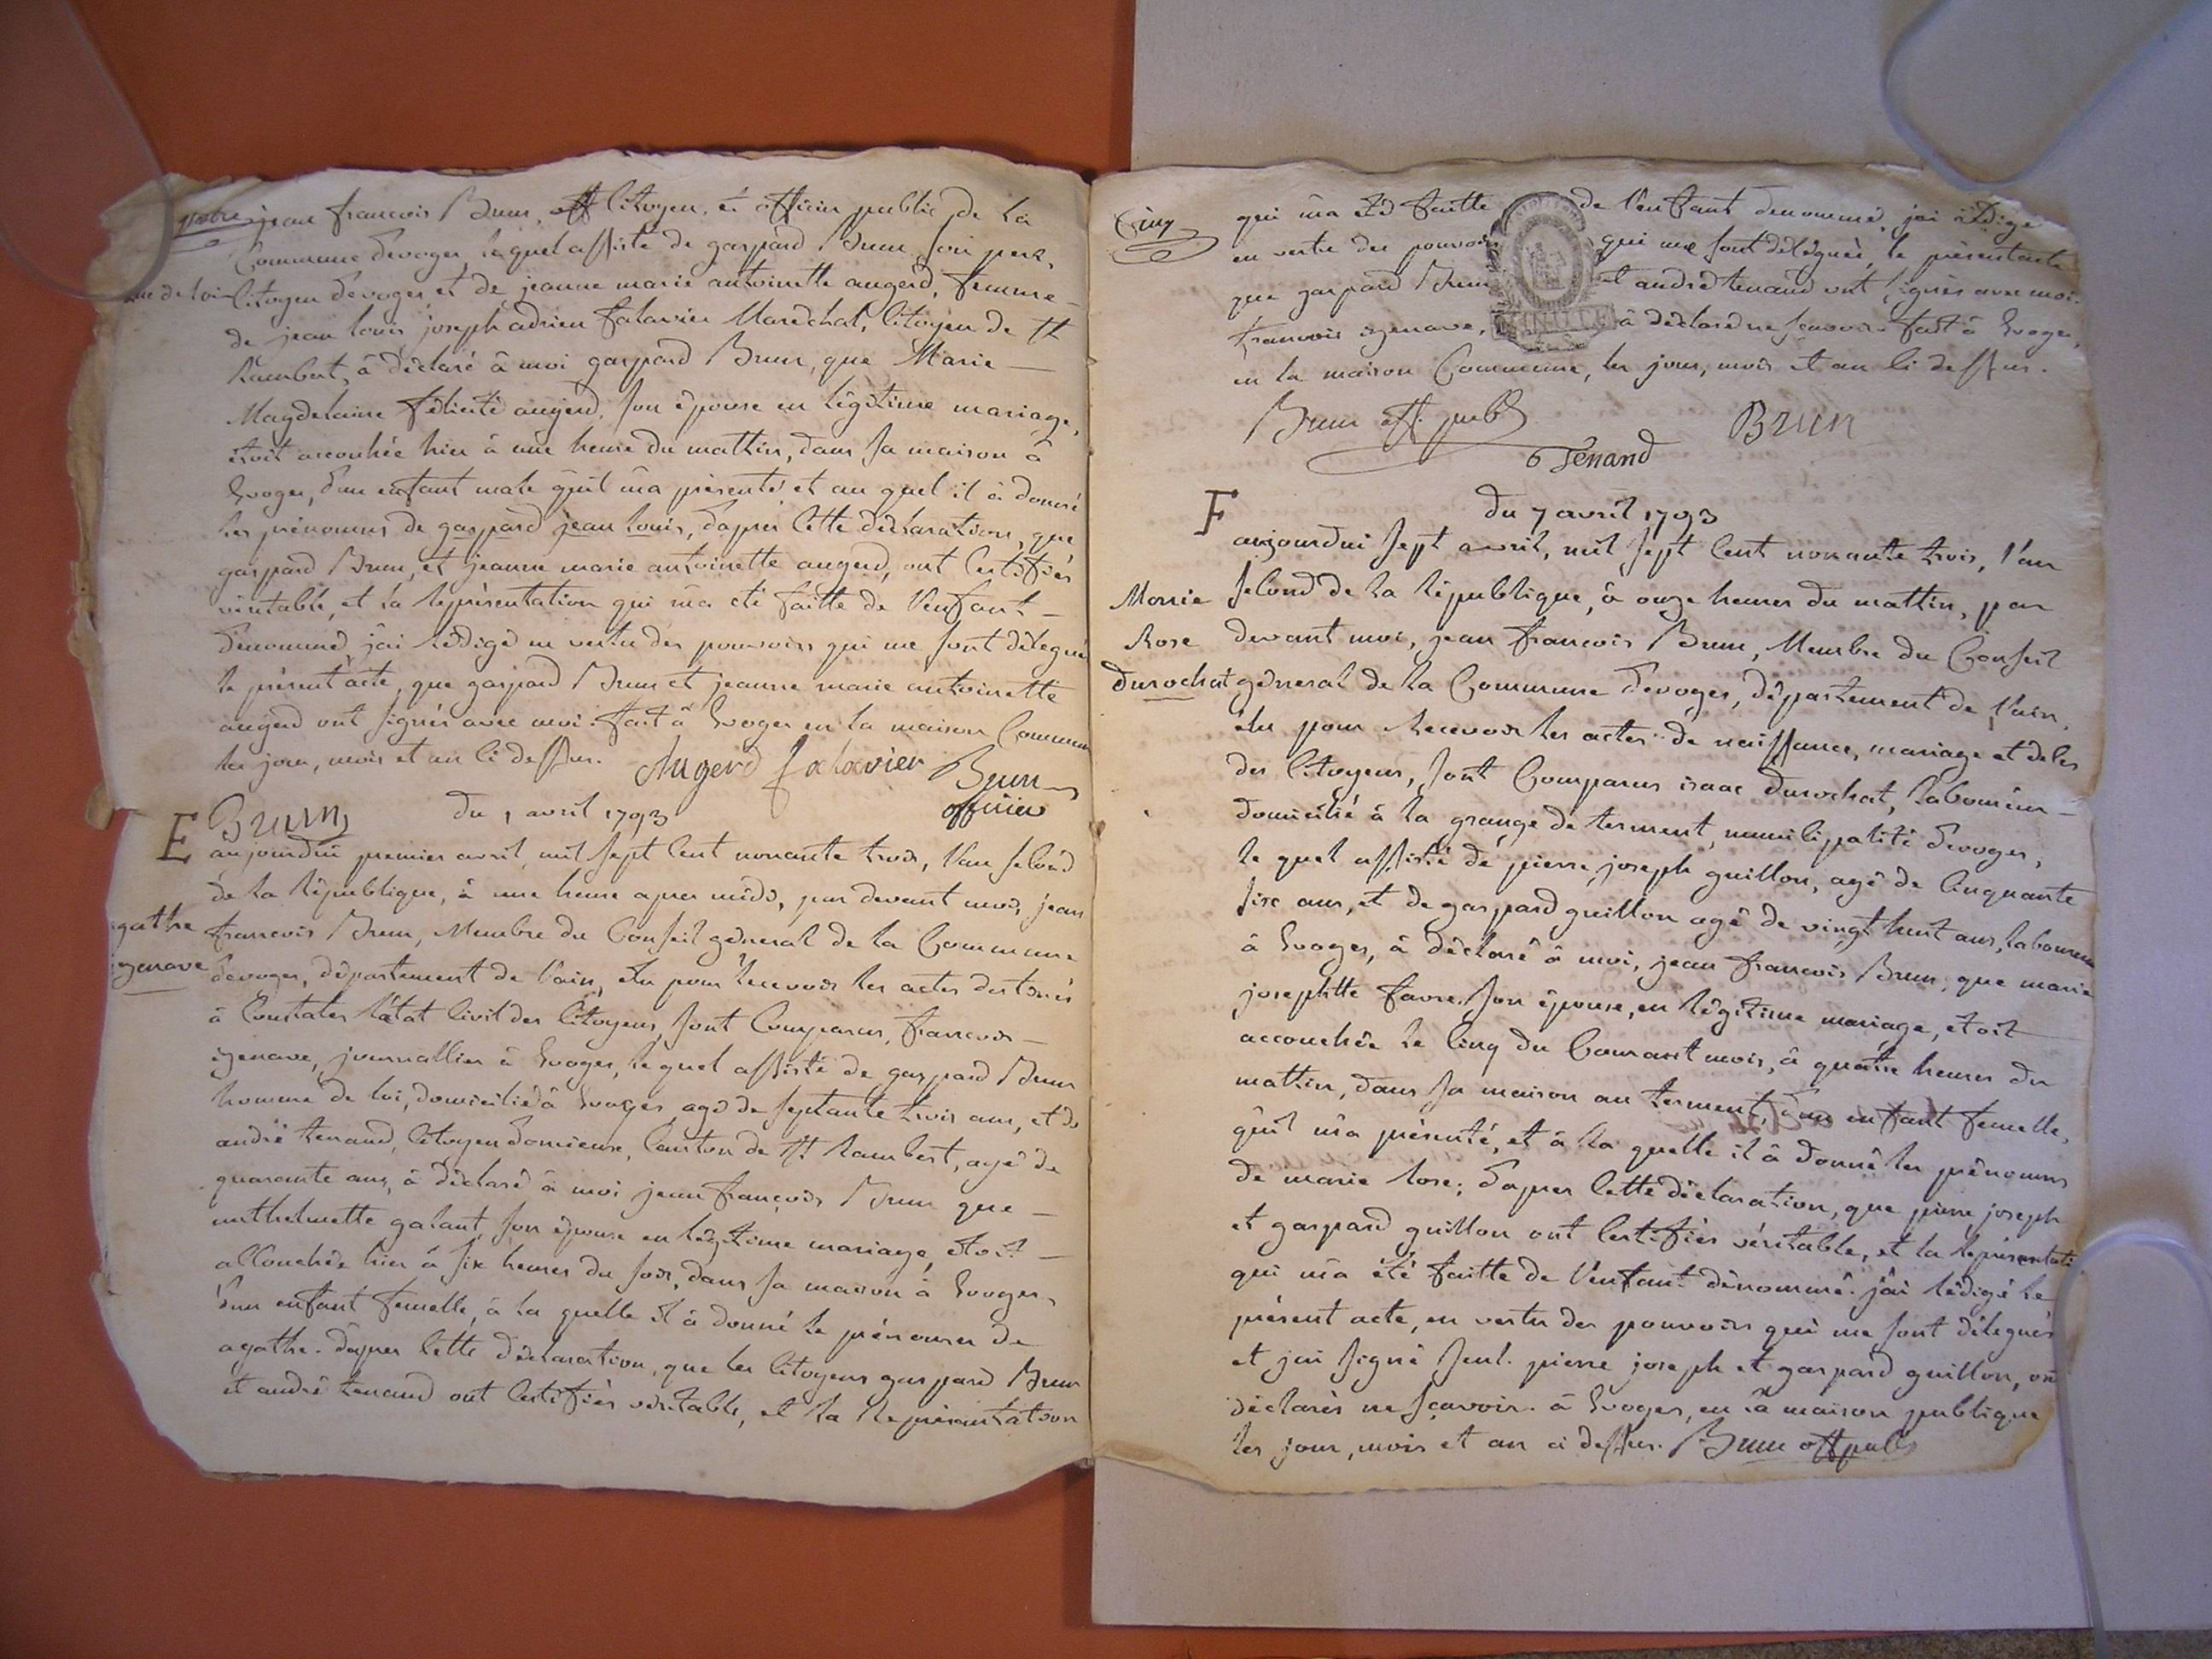 quatre
jean francois Brun, off Citoyen, et officier public de la
Commune d'evoges, lequel assisté de gaspard Brun son pere,
me de loi Citoyen d'evoges, et de jeanne marie antoinette augerd, femme
de jean louis joseph adrien falavier Marechal, Citoyen de St
Rambert, à déclaré à moi gaspard Brun, que Marie
Magdelaine félicité augerd, son épouse en légitime mariage,
étoit accouchée hier à une heure du mattin, dans sa maison à
Evoges, d'un enfant male qu'il m'a présenté et au quel il à donné
les prénoms de gaspard jean louis, d'après cette déclaration, que
gaspard Brun, et jeanne marie antoinette augerd, ont certifiés
véritable, et la représentation qui m'a été faitte de l'enfant
dénommé j'ai rédigé en vertu des pouvoirs qui me sont délégués
le présent acte, que gaspard Brun et jeanne marie antoinette
augerd ont signés avec moi. fait à Evoges en la maison Commune
les jour, mois et an ci dessus. Augerd falavier Brun
officier
Brun
du 1 avril 1793
E
aujourdui premier avril, mil sept cent nonante trois, l'an second
de la république, à une heure apres midi, par devant moi, jean
francois Brun, Membre du Conseil général de la Commune
d'evoges, département de l'ain, élu pour recevoir les actes destinés
à Constater l'état Civil des Citoyens, sont Comparus, francois
agathe
ygenave
ygenave, journallier à Evoges, lequel assisté de gaspard Brun
homme de loi, domicilié à Evoges, agé de septante trois ans, et de
andré tenand, Citoyen d'oncieux, Canton de St rambert, agé de
quarante ans, à déclaré à moi jean francois Brun que
anthelmette galant, son épouse en légitime mariage, étoit
accouchée hier à six heures du soir, dans sa maison à Evoges,
d'un enfant femelle, à la quelle il à donné le prénom de
agathe. d'apres cette déclaration, que les Citoyens gaspard Brun
et andré tenand ont certifiés véritable, et la représentation
Cinq
qui m'a été faitte de l'enfant denommé, j'ai rédigé
en vertu des pouvoirs qui me sont délégués, le présent acte
que gaspard Brun et andré tenand ont signés avec moi.
francois ygenave, à déclaré ne scavoir. fait à Evoges,
en la maison Commune, les jour, mois et an ci dessus.
Brun off. publ
Brun
Tenand
F
du 7 avril 1793
aujourdui sept avril, mil sept cent nonante trois, l'an
second de la république, à onze heures du mattin, par
devant moi, jean francois Brun, Membre du Conseil
Marie
Rose
Durochat
général de la Commune d'evoges, département de l'ain,
élu pour Recevoir les actes de naissance, mariage et décès
des Citoyens, sont Comparus isaac Durochat, laboureur
domicilié à la grange de terment, municipalité d'evoges,
le quel assisté de pierre joseph guillon, agé de Cinquante
six ans, et de gaspard guillon agé de vingt huit ans, laboureurs
à Evoges, à déclaré à moi, jean francois Brun, que marie
josephtte favre, son épouse, en légitime mariage, etoit
accouchée le Cinq du Courant mois, à quatre heures du
mattin, dans sa maison au terment, d'un enfant femelle,
qu'il m'a présenté, et à la quelle il à donné les prénoms
de marie rose; d'apres cette déclaration, que pierre joseph
et gaspard guillon ont certifiés véritable, et la représentation
qui m'a été faitte de l'enfant dénommé. j'ai rédigé le
présent acte, en vertu des pouvoirs qui me sont délégués
et j'ai signé seul. pierre joseph et gaspard guillon, ont
déclarés ne scavoir. à Evoges, en la maison publique
les jour, mois et an ci dessus. Brun off publ